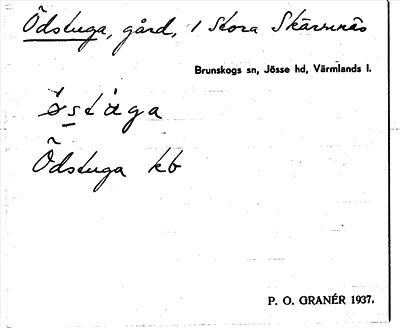 Ödstuga, gård, 1 Stora Skärmnäs
Brunskogs sn, Jösse hd, Värmlands l.
östȧga
Ödstuga kb
P. O. GRANÉR 1937.